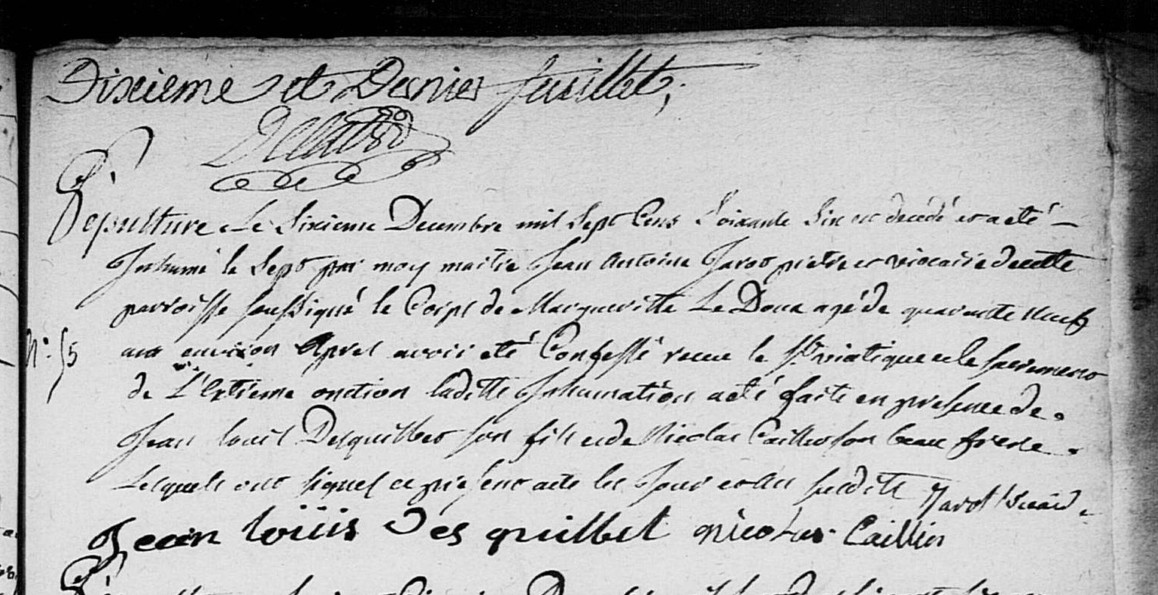 Dixieme et Dernier feuillet,
Sepulture Le Sixieme Decembre mil Sept Cens Soixante Six est decedé et a eté
Inhumé le Sept par moy maitre Jean Antoine Jarot pretre et vicaire de cette
parroisse soussigné le Corps de Margueritte Le Doux agé de quarante neuf
ans environ Apres avoir eté Confessé receue le St viatique et le sacrement
de L'Extreme onction laditte Inhumation a eté faite en presence de
Jean louis Desquilbet son fils et de Nicolas Caillier son beau frere
Lesquels ont signes ce present acte les Jour et an susdits Jarot vicaire
N: 55
Jean loüis Des quilbet nicolas Caillier